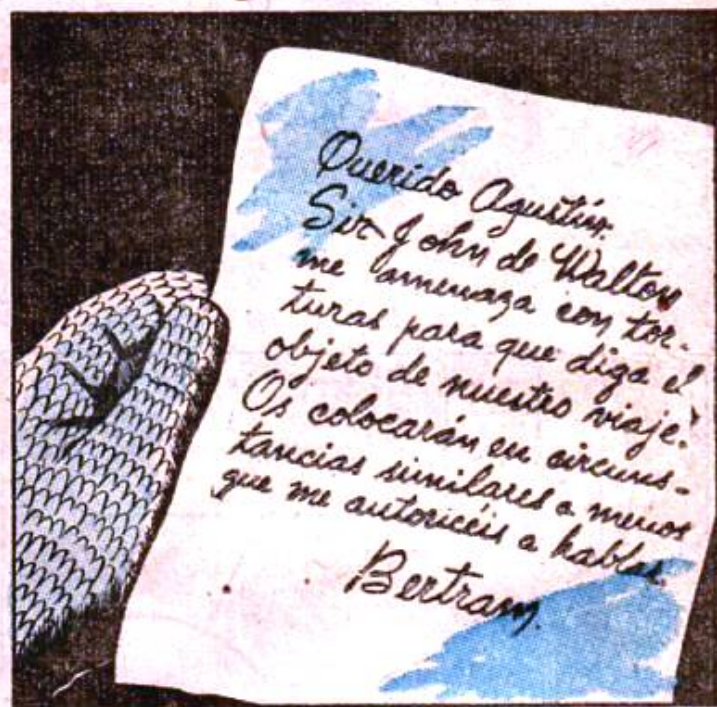 Querido Agustín:
Sir John de Walton
me amenaza con tor-
turas para que diga el
objeto de nuestro viaje.
Os colocarán en circuns-
tancias similares a menos
que me autoricéis a hablar.
Bertram.